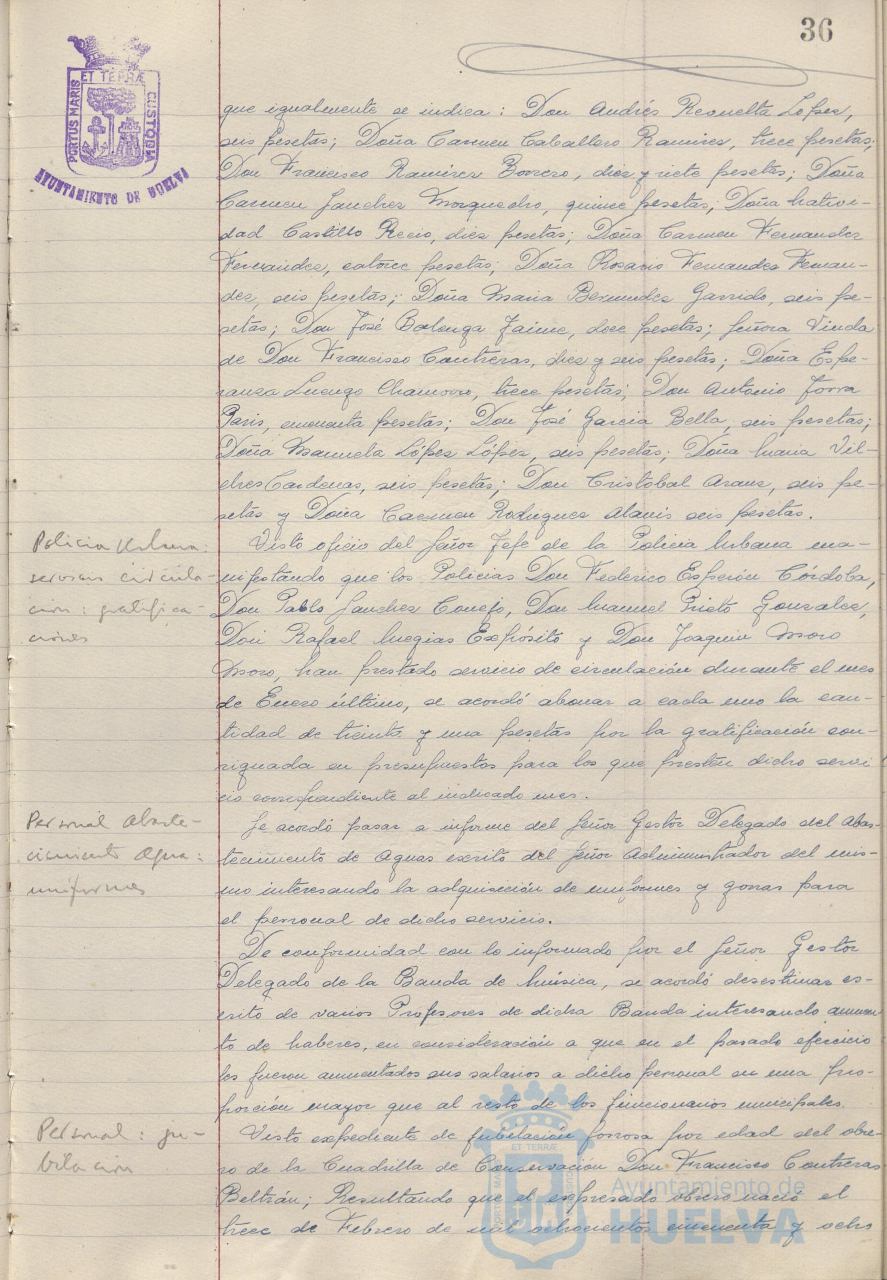 36
PORTUS MARIS ET TERRÆ CUSTODIA
AYUNTAMIENTO DE HUELVA
que igualmente se indica: Don Andrés Revuelta López,
seis pesetas; Doña Carmen Caballero Ramirez, trece pesetas;
Don Francisco Ramirez Borrero, diez y siete pesetas; Doña
Carmen Sanchez Mosquedro, quince pesetas; Doña Nativi-
dad Castillo Recio, diez pesetas; Doña Carmen Fernandez
Fernandez, catorce pesetas; Doña Rosario Fernandez Fernan-
dez, seis pesetas; Doña Maria Bermudez Garrido, seis pe-
setas; Don José Balonga Jaime, doce pesetas; Señora Viuda
de Don Francisco Contreras, diez y seis pesetas; Doña Espe-
ranza Luengo Chamorro, trece pesetas; Don Antonio Jorva
Paris, cincuenta pesetas; Don José Garcia Bella, seis pesetas;
Doña Manuela López López, seis pesetas; Doña Maria Vil-
ches Cardenas, seis pesetas; Don Cristobal Arauz, seis pe-
setas y Doña Carmen Rodriguez Alanis seis pesetas.
Policia Urbana:
servicios circula-
cion: gratifica-
ciones
Visto oficio del Señor Jefe de la Policia Urbana ma-
nifestando que los Policias Don Federico Esperón Córdoba,
Don Pablo Sanchez Conejo, Don Manuel Prieto Gonzalez,
Don Rafael Megias Expósito y Don Joaquin Moro
Moro, han prestado servicio de circulación durante el mes
de Enero último, se acordó abonar a cada uno la can-
tidad de treinta y una pesetas por la gratificación con-
signada en presupuestos para los que presten dicho servi
cio correspondiente al indicado mes.
Personal Abaste-
cimiento Agua:
uniformes
Se acordó pasar a informe del Señor Gestor Delegado del Abas-
tecimiento de Aguas escrito del Señor Administrador del mis-
mo interesando la adquisición de uniformes y gorras para
el personal de dicho servicio.
De conformidad con lo informado por el Señor Gestor
Delegado de la Banda de Música, se acordó desestimar es-
crito de varios Profesores de dicha Banda interesando aumen
to de haberes, en consideración a que en el pasado ejercicio
les fueron aumentados sus salarios a dicho personal en una pro-
porción mayor que al resto de los funcionarios municipales.
Personal: ju-
bilacion
Visto expediente de jubilación forzosa por edad del obre-
ro de la Cuadrilla de Conservación Don Francisco Contreras
Beltrán; Resultando que el expresado obrero nació el
trece de Febrero de mil ochocientos cincuenta y ocho
Ayuntamiento de
HUELVA